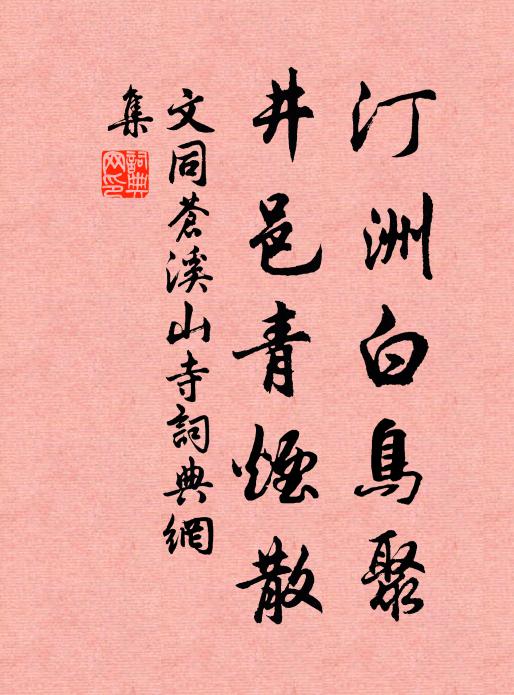 汀洲白鳥聚
井邑青煙散
文同蒼溪山寺詞典網
集
詞典
网印